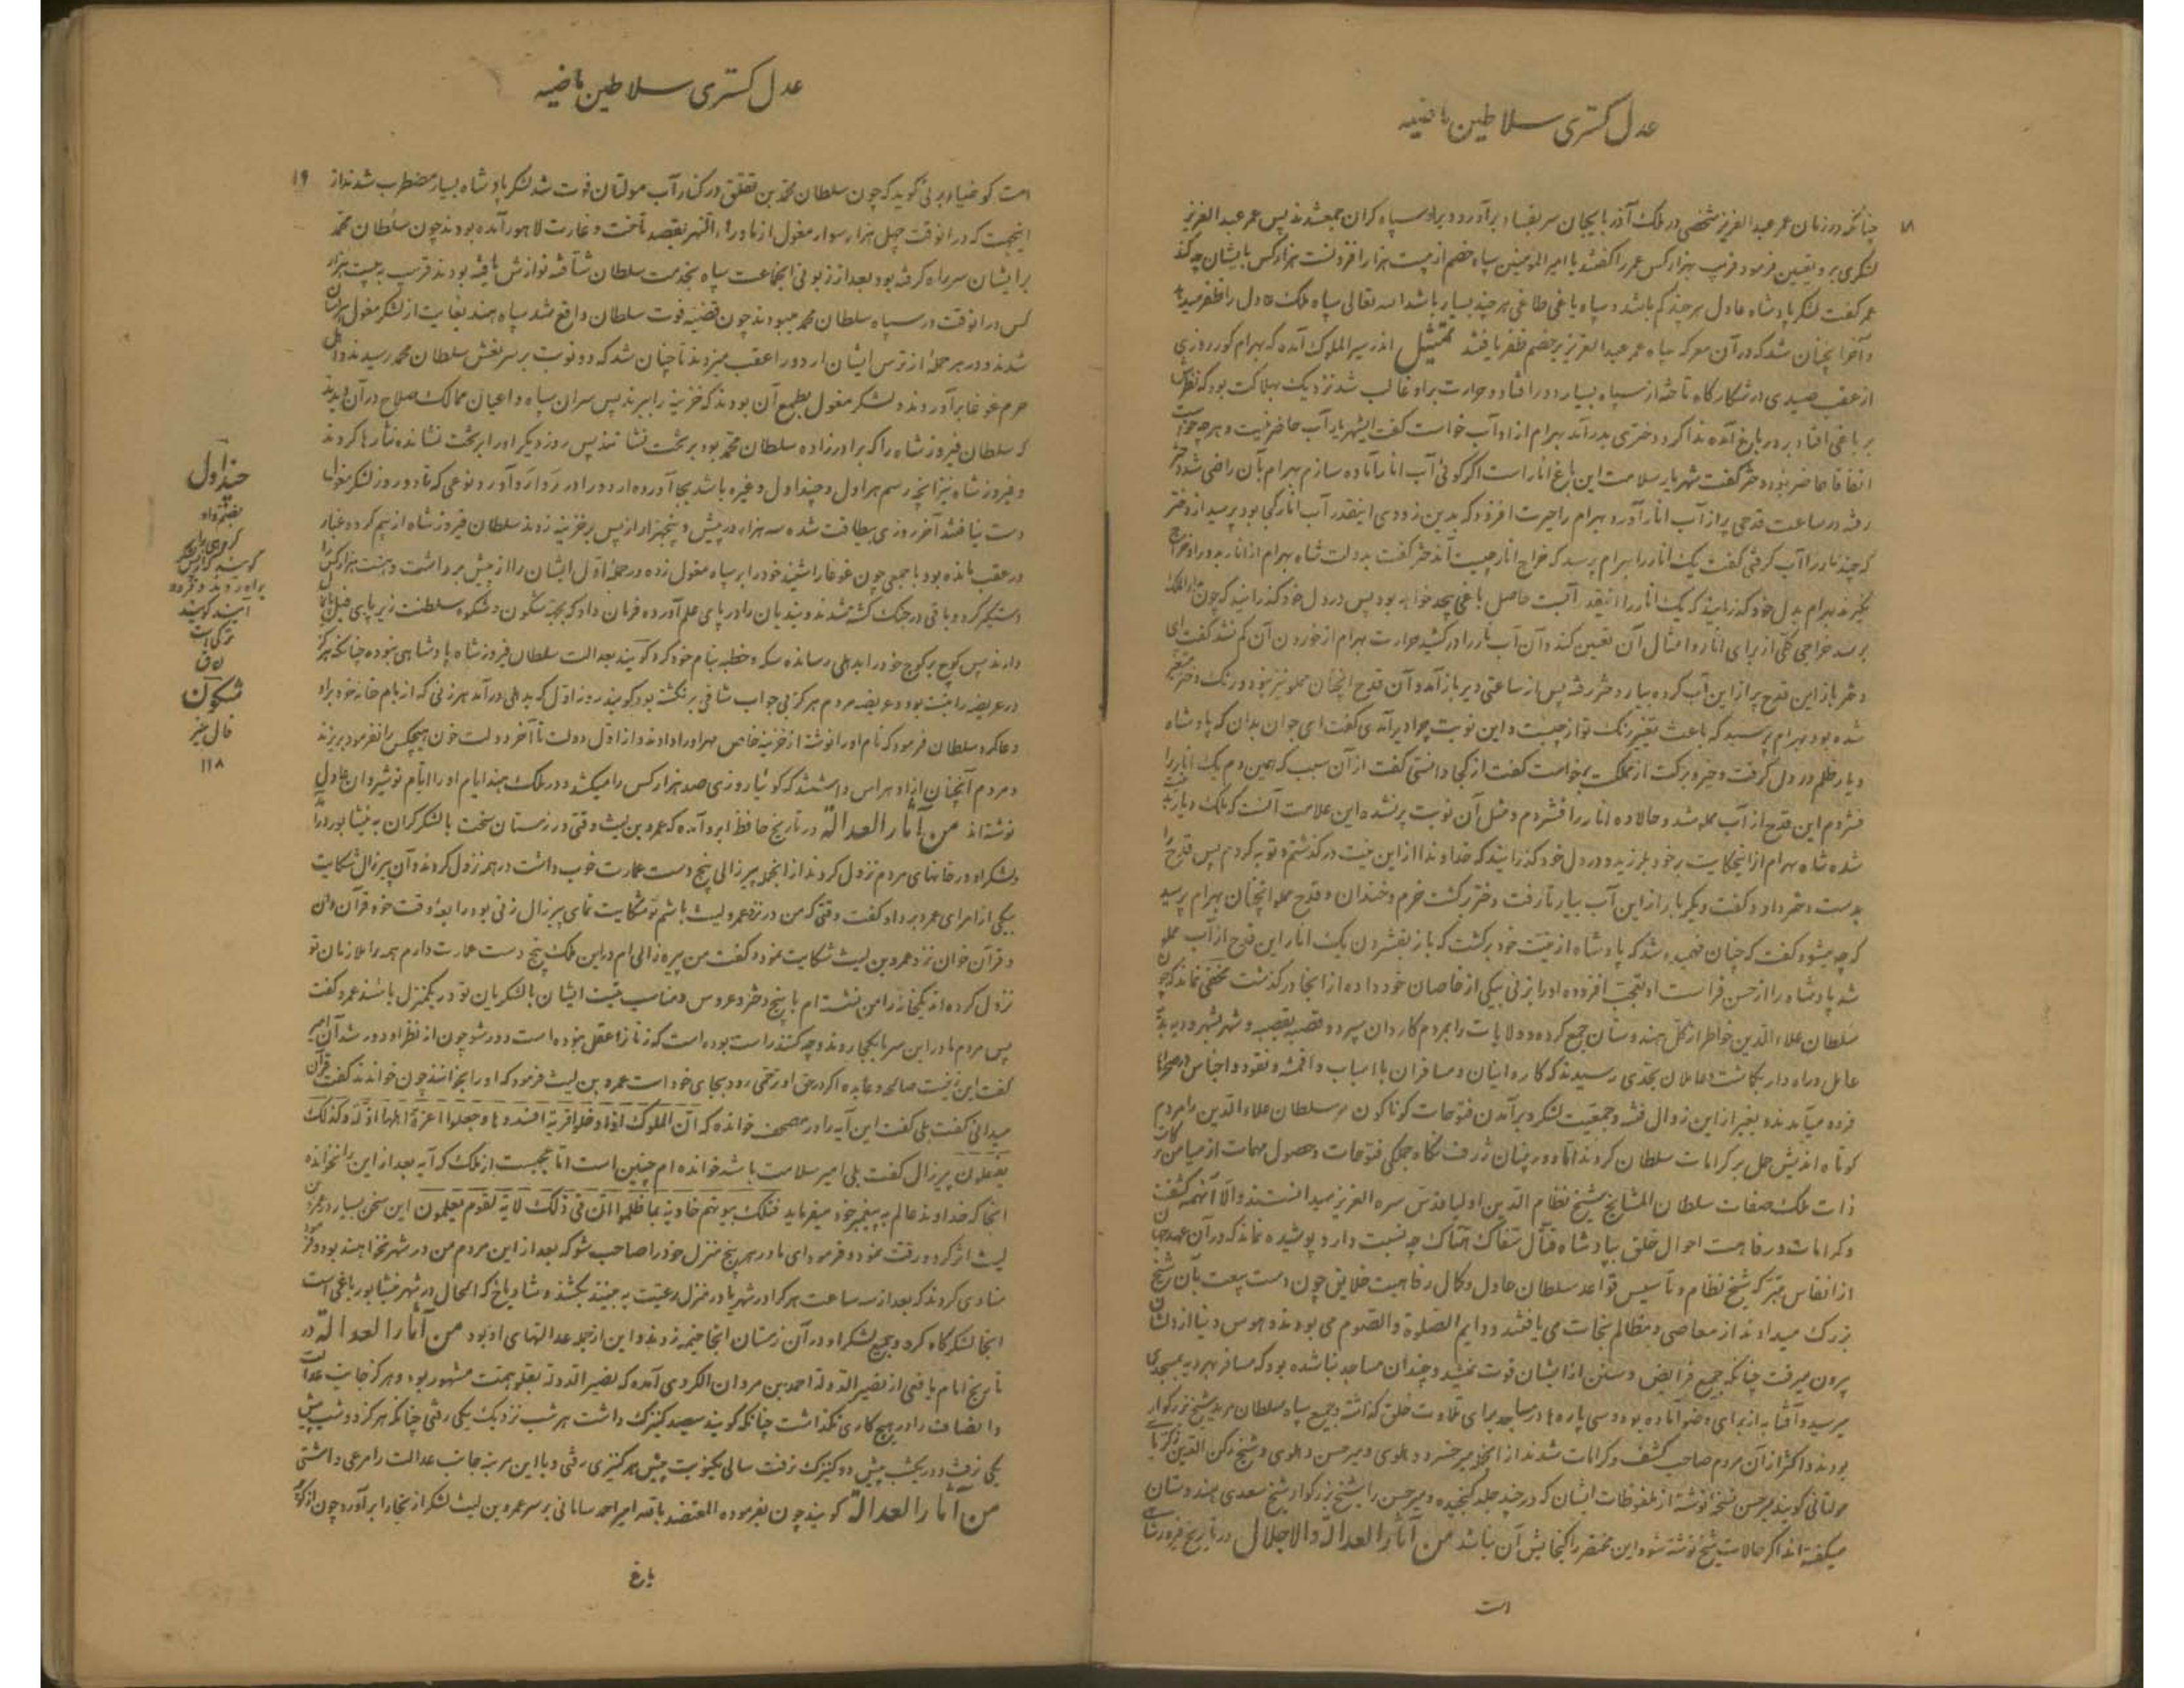 عدل گستری سلاطین ماضیه
۱۸
چنانکه در زمان عمر عبدالعزیز شخصی در ملک آذربایجان سر بفساد برآورد و برا و سپاه گران جمع شدند پس عمر عبدالعزیز
لشکری برو تعیین فرمود قریب بهزار کس عمر را گفتند یا امیرالمؤمنین سپاه خصم از بیست هزار افزونست هزار کس بایشان چه کند
عمر گفت لشکر پادشاه عادل هر چند کم باشد و سپاه باغی طاغی هر چند بسیار باشد الله تعالی سپاه ملک عادل را ظفر میدهد
و آخر انچنان شد که در آن معرکه سپاه عمر عبدالعزیز بر خصم ظفر یافتند تمثیل اندر سیرالملوک آمده که بهرام گور روزی
از عقب صیدی در شکارگاه تاخته از سپاه بسیار دور افتاد و حرارت برا و غالب شد نزدیک بهلاکت بود که نظرش
بر باغی افتاد بر در باغ آمده ندا کرد دختری بدر آمد بهرام ازا و آب خواست گفت ایشهریار آب حاضر نیست و هر چه جواب
اتفاقا حاضر نبود دختر گفت شهریار سلامت این باغ انار است اگر گوئی آب انار آماده سازم بهرام بآن راضی شد دختر
رفته در ساعت قدحی پر از آب انار آورد بهرام را حیرت افزود که بدین زودی اینقدر آب انار کجا بود پرسید از دختر
که چند نار را آب گرفتی گفت یک انار را بهرام پرسید که خراج انار چیست آندختر گفت بدولت شاه بهرام از انار بدور اخراج
نگیرند بهرام بدل خود گذرانید که یک انار را اینقدر آبست حاصل باغی بچه خواهد بود پس در دل خود گذرانید که چون بدارالملک
برسد خراجی کلی از برای انار و امثال آن تعیین کند و آن آب نار را در کشید حرارت بهرام از خوردن آن کم نشد گفت ای
دختر باز این قدح پر از این آب کرده بیار دختر رفته پس از ساعتی دیر باز آمد و آن قدح انچنان مملو نیز نبود و رنگ دختر متغیر
شده بود بهرام پرسید که باعث تغییر رنگ تو از چیست و این نوبت چرا دیر آمدی گفت ای جوان بدان که پادشاه
دیار ظلم در دل گرفت و خیر و برکت از مملکت برخواست گفت از کجا دانستی گفت از آن سبب که همین دم یک انار را
فشردم این قدح از آب مملو شد و حالا ده انار را فشردم و مثل آن نوبت پر نشده این علامت آنست که ملک دیار بدنیت
شده شاه بهرام از اینحکایت بر خود بلرزید و در دل خود گذرانید که خداوندا از این نیت در گذشتم و توبه کردم پس قدح را
بدست دختر داد و گفت دیگر بار از این آب بیار تا رفت دختر برگشت خرم و خندان و قدح مملو انچنان بهرام پرسید
که چه میشود گفت که چنان فهمیده شد که پادشاه از نیت خود برگشت که باز بفشردن یک انار این قدح از آب مملو
شد پادشاه را از حسن فراست او تعجب افزوده او را بزنی بیکی از خاصان خود داده از انجا در گذشت مخفی نماند که چون
سلطان علاءالدین خواطر از کل هندوستان جمع کرده و ولایات را بمردم کاردان سپرد و قصبه بقصبه و شهر بشهر و دیه بدیه
عامل و راه دار بگماشت و عاملان بحدی رسیدند که کاروانیان و مسافران با اسباب و اقمشه و نقود و اجناس در صحرا
فرود میآمدند و بغیر از این زوال فتنه و جمعیت لشکر و برآمدن فتوحات گوناگون بر سلطان علاءالدین را مردم
کوتاه اندیش حمل بر کرامات سلطان کردند اما دور بینان ژرف نگاه جملگی فتوحات و حصول مهمات از میامن برکات
ذات ملک صفات سلطان المشایخ شیخ نظام الدین اولیا قدس سره العزیز میدانستند والا آنهمه کشف
و کرامات و رفاهیت احوال خلق بپادشاه قتال سفاک هتاک چه نسبت دارد پوشیده نماند که در آن عهد چون
از انفاس متبرکه شیخ نظام و تأسیس قواعد سلطان عادل و کمال رفاهیت خلایق چون دست بیعت بآن شیخ
بزرگ میدادند از معاصی و مظالم نجات می یافتند و دایم الصلوة والصوم می بودند و هوس دنیا از دلشان
بیرون میرفت چنانکه جمیع فرایض و سنن از ایشان فوت نمیشد و چندان مساجد بنا شده بود که مسافر بهر دیه بمسجدی
میرسید و آفتابه از برای وضو آماده بود و سی پاره ها در مساجد برای تلاوت خلق گذاشته و جمیع سپاه سلطان مرید شیخ بزرگوار
بودند و اکثر از آن مردم صاحب کشف و کرامات شدند از انجمله میر خسرو دهلوی و میر حسن دهلوی و شیخ رکن الدین زکریای
مولتانی گویند میر حسن نسخه نوشته از ملفوظات ایشان که در چند جلد گنجیده و میر حسن را شیخ بزرگوار شیخ سعدی هندوستان
میگفته اند اگر حالات شیخ نوشته شود این مختصر را گنجایش آن نباشد من آثار العدالة والاجلال در تاریخ فیروز شاهی
است
عدل گستری سلاطین ماضیه
۱۹
است که ضیاء برنی گوید که چون سلطان محمد بن تغلق در کنار آب مولتان فوت شد لشکر پادشاه بسیار مضطرب شدند از
اینجهت که در انوقت چهل هزار سوار مغول از ماوراءالنهر بقصد تاخت و غارت لاهور آمده بودند چون سلطان محمد
برایشان سر راه گرفته بود بعد از زبونی انجماعت سپاه بخدمت سلطان شتافته نوازش یافته بودند قریب به بیست هزار
کس در انوقت در سپاه سلطان محمد میبودند چون قضیه فوت سلطان واقع شد سپاه هند بغایت از لشکر مغول هراسان
شدند و در هر حمله از ترس ایشان اردو را عقب میزدند تا چنان شد که دو نوبت بر سر نعش سلطان محمد رسیدند و اهل
حرم غوغا برآوردند و لشکر مغول بطمع آن بودند که خزینه را ببرند پس سران سپاه و اعیان ممالک صلاح در آن دیدند
که سلطان فیروز شاه را که برادرزاده سلطان محمد بود بر تخت نشانند پس روز دیگر او را بر تخت نشانده نثارها کردند
و فیروز شاه نیز انچه رسم هراول و چنداول و غیره باشد بجا آورده اردو را در رداوردآورد و نوعی که تا دو روز لشکر مغول
دست نیافتند آخر روزی بیطاقت شده سه هزار در پیش و پنجهزار از پس بر خزینه زدند سلطان فیروز شاه از بیم گرد و غبار
در عقب مانده بود با جمعی چون غوغا را شنید خود را بر سپاه مغول زده در حمله اول ایشان را از پیش برداشت و هشت هزار کس را
دستگیر کرد و باقی در جنگ کشته شدند و بندیان را در پای علم آورده فرمان داد که بجهت شگون و شکوه سلطنت زیر پای فیل پامال
دارند پس کوچ بر کوچ خود را بدهلی رسانده سکه و خطبه بنام خود کرد گویند بعدالت سلطان فیروز شاه پادشاهی نبوده چنانکه هرگز
در عریضه را نبست بود و عریضه مردم هرگز بی جواب شافی برنگشته بود گویند روز اول که بدهلی درآمد هر زنی که از بام خانه خود برا و
دعا کرد سلطان فرمود که نام او را نوشته از خزینه خاص مهر او را دادند و از اول دولت تا آخر دولت خون هیچکس را نفرمود بریزند
و مردم آنچنان از او هراس داشتند که گوئیا روزی صد هزار کس را میکشد و در ملک هند ایام او را ایام نوشیروان عادل
نوشته اند من آثار العدالة در تاریخ حافظ ابرو آمده که عمرو بن لیث وقتی در زمستان سخت با لشکر گران به نیشابور درآمد
و لشکر او در خانهای مردم نزول کردند از انجمله پیر زالی پنج دست عمارت خوب داشت در همه نزول کردند و آن پیر زال شکایت
بیکی از امرای عمرو برد او گفت وقتی که من در نزد عمرو لیث باشم تو شکایت نمای پیر زال زنی بود رابعهٔ وقت خود قرآن دان
و قرآن خوان نزد عمرو بن لیث شکایت نمود و گفت من پیره زالی ام در این ملک پنج دست عمارت دارم همه را ملازمان تو
نزول کرده اند یکخانه را من نشسته ام با پنج دختر و عروس و مناسب نیست ایشان با لشکریان تو در یکمنزل باشند عمرو گفت
پس مردم ما در این سرما بکجا روند و چه کنند راست بوده است که زنان را عقل نبوده است دور شو چون از نظر او دور شد آن امیر
گفت این زنیست صالحه و عابده اگر در حق او رحمی رود بجای خود است عمرو بن لیث فرمود که او را بخوانند چون خواندند گفت قرآن
میدانی گفت بلی گفت این آیه را در مصحف خوانده که ان الملوک اذا دخلوا قریة افسدوها و جعلوا اعزة اهلها اذلة و کذلک
یفعلون پیر زال گفت بلی امیر سلامت باشد خوانده ام چنین است اما عجبست از ملک که آیه بعد از این را نخوانده
انجا که خداوند عالم به پیغمبر خود میفرماید فتلک بیوتهم خاویة بما ظلموا ان فی ذلک لآیة لقوم یعلمون این سخن بسیار در عمرو بن
لیث اثر کرد و رقت نمود و فرمود ای مادر هر پنج منزل خود را صاحب شو که بعد از این مردم من در شهر نخواهند بود و فرمود
منادی کردند که بعد از سه ساعت هر که را در شهر یا در منزل رعیت به بینند بکشند و شادیاخ که الحال در شهر نیشابور باغی است
انجا لشکرگاه کرد و جمیع لشکر او در آن زمستان انجا خیمه زدند و این از جمله عدالتهای او بود من آثار العدالة در
تاریخ امام یافعی از نصیر الدوله احمد بن مروان الکردی آمده که نصیر الدوله بعلو همت مشهور بود و هرگز جانب عدالت
و انصاف را در هیچ کاری نگذاشت چنانکه گویند سیصد کنیزک داشت هر شب نزدیک یکی رفتی چنانکه هرگز دو شب پیش
یکی نرفت و در یکشب پیش دو کنیزک نرفت سالی یکنوبت پیش هر کنیزی رفتی و با این مرتبه جانب عدالت را مرعی داشتی
من آثار العدالة گویند چون بفرموده المعتضد بالله امیر احمد سامانی بر سر عمرو بن لیث لشکر از بخارا برآورد چون از کوچه
باغ
چنداول
بضم واو
گروهی را
گویند که از پس لشکر
براه روند و فرود
آیند گویند
ترکی است
ن ق
شگون
فال نیز
۱۱۸